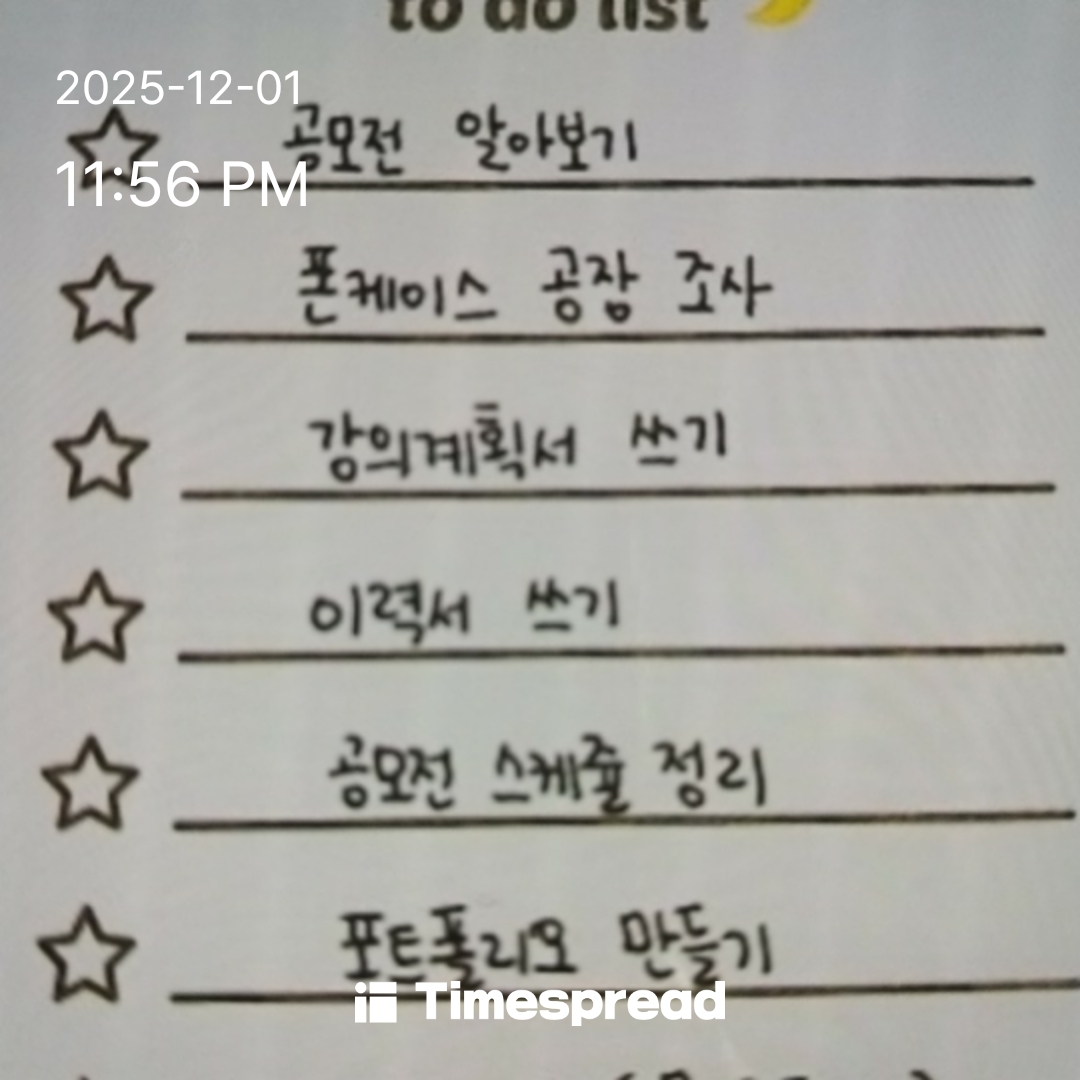 to do list
2025-12-01
공모전 알아보기
11:56 PM
폰케이스 공장 조사
강의계획서 쓰기
이력서 쓰기
공모전 스케쥴 정리
포트폴리오 만들기
Timespread